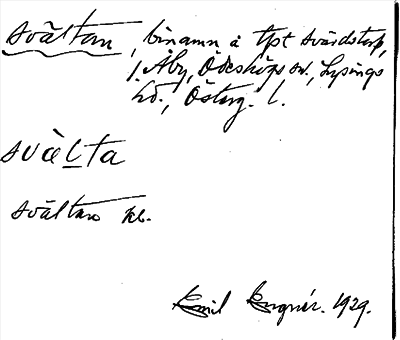 svältan, binamn å tpt Svärdstorp,
i Åby, Ödeshögs sn., Lysings
hd., Österg. l.
svèlta
svältan kb.
Emil Engnér. 1929.